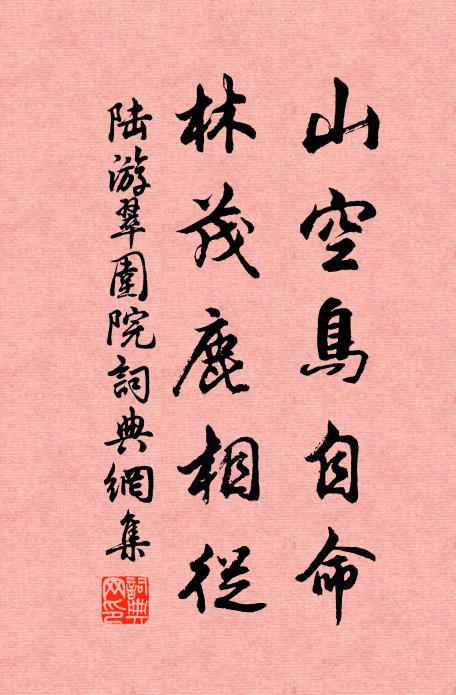 山空鳥自命
林茂鹿相從
陸游翠圍院詞典網集
詞典網印